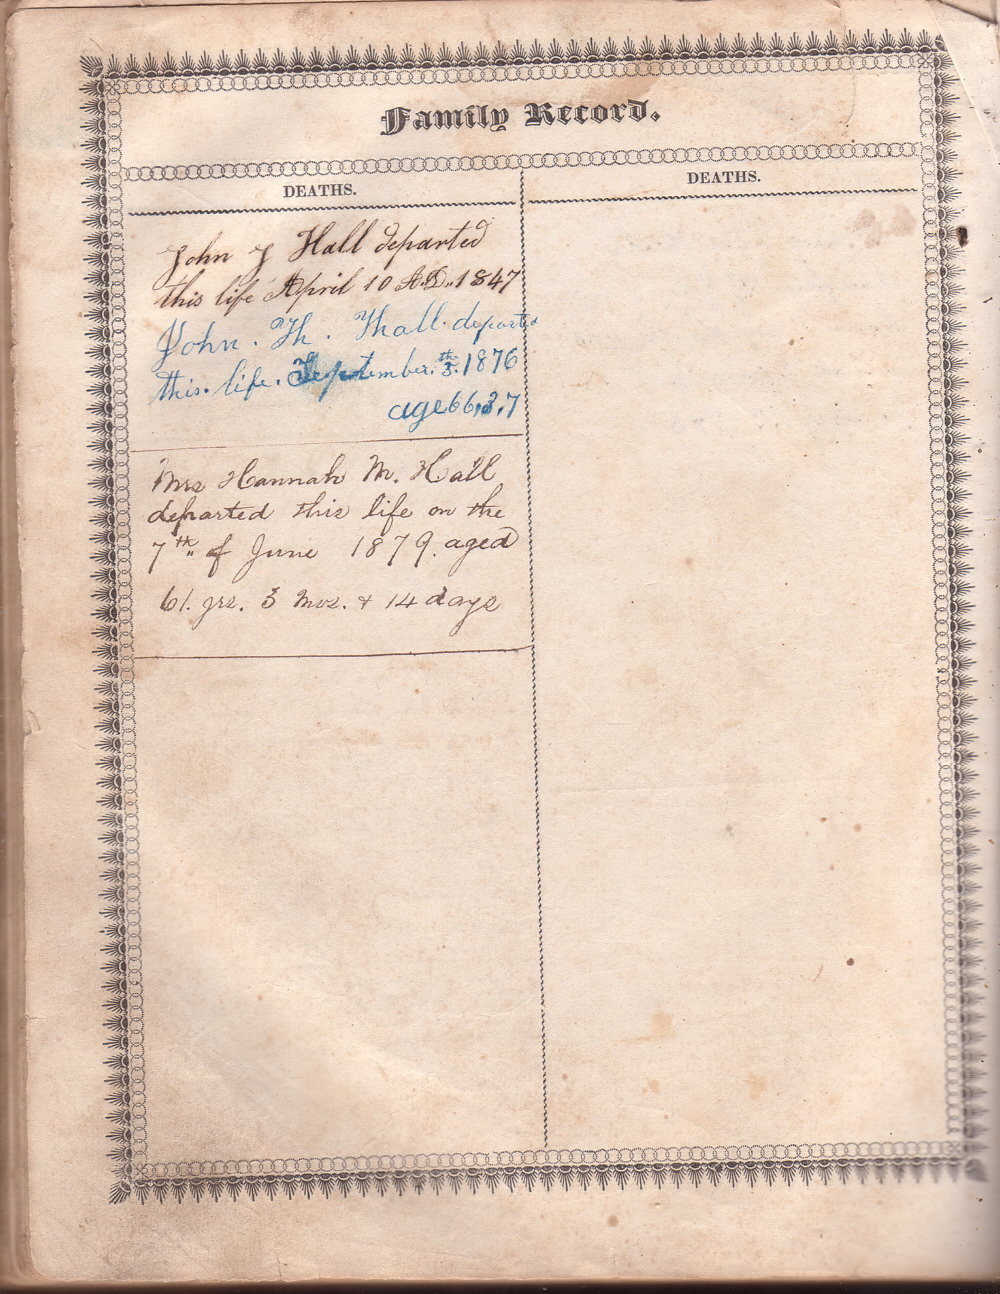 Family Record.
DEATHS.
John J Hall departed
this life April 10 A.D. 1847
John. H. Hall. departed
this. life. September. 3th. 1876
age 66,3,7
Mrs Hannah M. Hall
departed this life on the
7th of June 1879. aged
61. yrs. 3 mos. & 14 days
DEATHS.